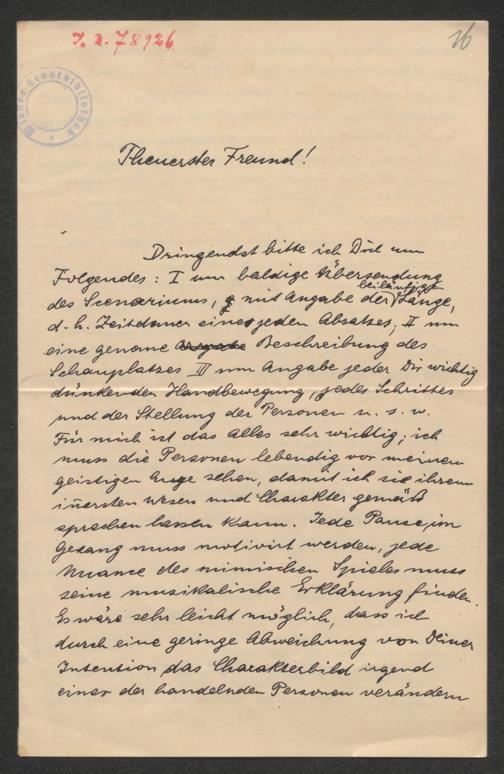 I. N. 78926
16
Wiener Stadtbibliothek
Theuerster Freund!
Dringendst bitte ich Dich um
Folgendes: I um baldige Übersendung
des Scenariums, mit Angabe der beiläufigen Länge,
d. h. Zeitdauer eines jeden Absatzes, II um
eine genaue Beschreibung des
Schauplatzes III um Angabe jeder Dir wichtig
dünkenden Handbewegung, jedes Schrittes
und der Stellung der Personen u. s. w.
Für mich ist das alles sehr wichtig; ich
muss die Personen lebendig vor meinem
geistigen Auge sehen, damit ich sie ihrem
innersten Wesen und Charakter gemäß
sprechen lassen kann. Jede Pause im
Gesang muss motivirt werden, jede
Nuance des mimischen Spieles muss
seine musikalische Erklärung finden.
Es wäre sehr leicht möglich, dass ich
durch eine geringe Abweichung von Deiner
Intention das Charakterbild irgend
einer der handelnden Personen verändern